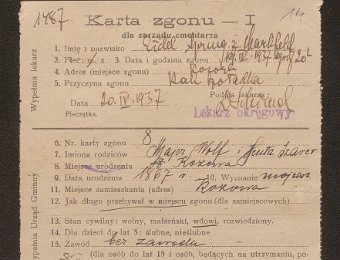 1487
14
Karta zgonu — I
dla zarządu cmentarza
1. Imię i nazwisko
2. Płeć: m. ż. 3. Data i godzina zgonu 19.IV.1937
4. Adres (miejsce zgonu) Kozowa
5. Przyczyna zgonu Rak żołądka
Podpis lekarza:
Data 20.IV.1937
Pieczątka. Lekarz okręgowy
Wypełnia lekarz
6. Nr. karty zgonu 8
7. Imiona rodziców Major Wolf i
8. Miejsce urodzenia Kozowa
9. Data urodzenia 1867 r. 10. Wyznanie mojżesz
11. Miejsce zamieszkania Kozowa
12. Jak długo przebywał w miejscu zgonu (dla zamiejscowych)
13. Stan cywilny: wolny, małżeński, wdowi, rozwiedziony.
14. Dla dzieci do lat 5: ślubne, nieślubne
15. Zawód bez zawodu
(dla osób do lat 15 i osób, będących na utrzymaniu, po-
Wypełnia Urząd Gminny